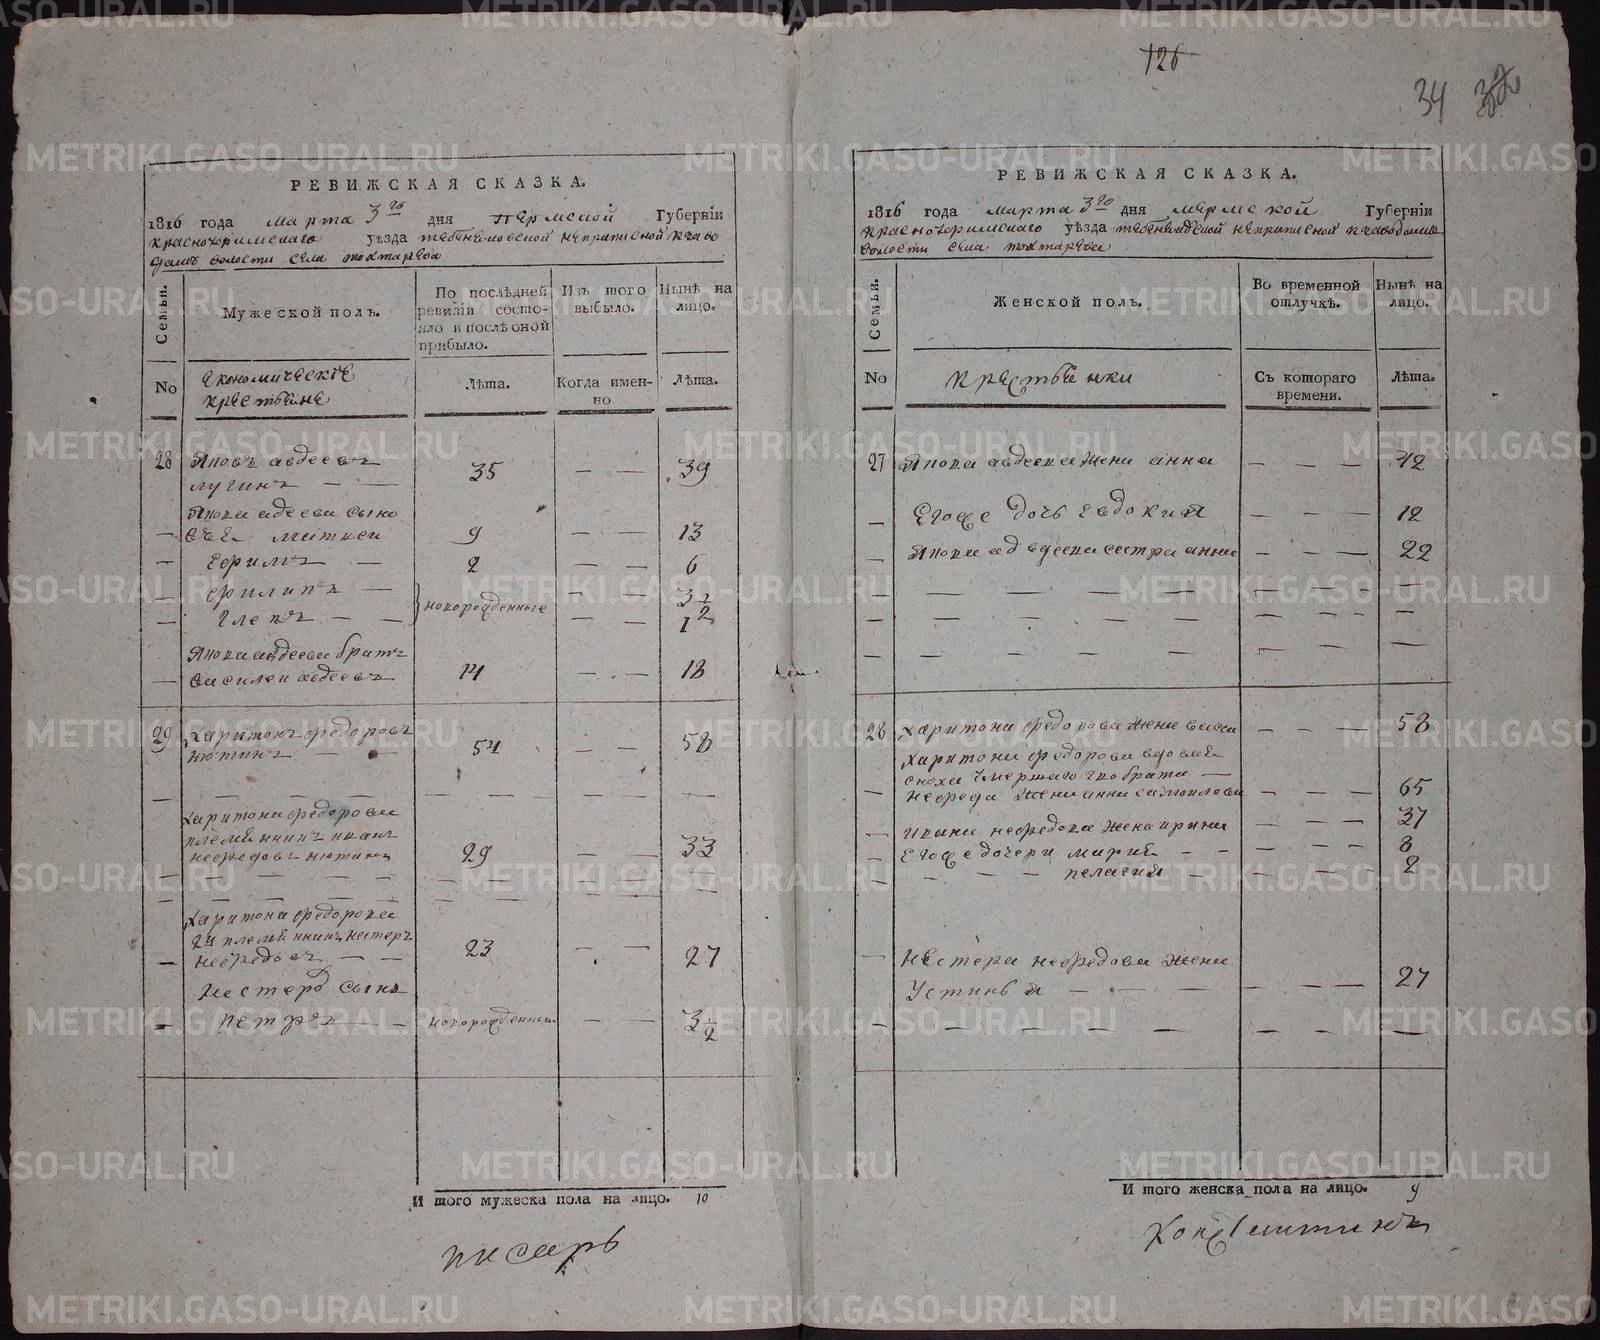 126
34
РЕВИЖСКАЯ СКАЗКА.
1816 года марта 3го дня пермской Губерніи
красноуфимскаго уѣзда непрописной к заво
дамъ волости села токтарева
Семьи.
Мужеской полъ.
По послѣдней ревизіи состояло и послѣ оной прибыло.
Изъ того выбыло.
Нынѣ на лицо.
No
економическіе крестьяне
Лѣта.
Когда именно
Лѣта.
28 Яковъ авдеевъ
лугинъ — — 35 — — 39
Якова авдеева сыно
вья матвеи 9 — — 13
ефимъ — 2 — — 6
филипъ — новорожденные — — 3 1/2
глепъ — — — — 1
Якова авдеева братъ
василеи авдеевъ 14 — — 18
29 харитонъ федоровъ
нютинъ — — 54 — — 58
харитона федорова
племянникъ иванъ
нефедовъ нютинъ 29 — — 33
харитона федорова
2й племянникъ нестеръ
нефедовъ — — 23 — — 27
нестера сынъ
петръ — новорожденныи — — 3 1/2
И того мужеска пола на лицо. 10
писарь
РЕВИЖСКАЯ СКАЗКА.
1816 года марта 3го дня пермской Губерніи
красноуфимскаго уѣзда непрописной к заводамъ
волости села токтарева
Семьи.
Женской полъ.
Во временной отлучкѣ.
Нынѣ на лицо.
No
крестьянки
Съ котораго времени.
Лѣта.
27 Якова авдеева жена анна — — — 42
Егоже дочь Евдокия — — — 12
Якова авдеева сестра анна — — — 22
28 харитона федорова жена васса — — — 58
харитона федорова вдовая
сноха умершаго его брата —
нефеда жена анна самоилова — — — 65
ивана нефедова жена ирина — — — 37
Егоже дочери мария — — — 8
пелагия — — — 2
Нестера нефедова жена
Устинья — — — 27
И того женска пола на лицо. 9
Константинъ
METRIKI.GASO-URAL.RU